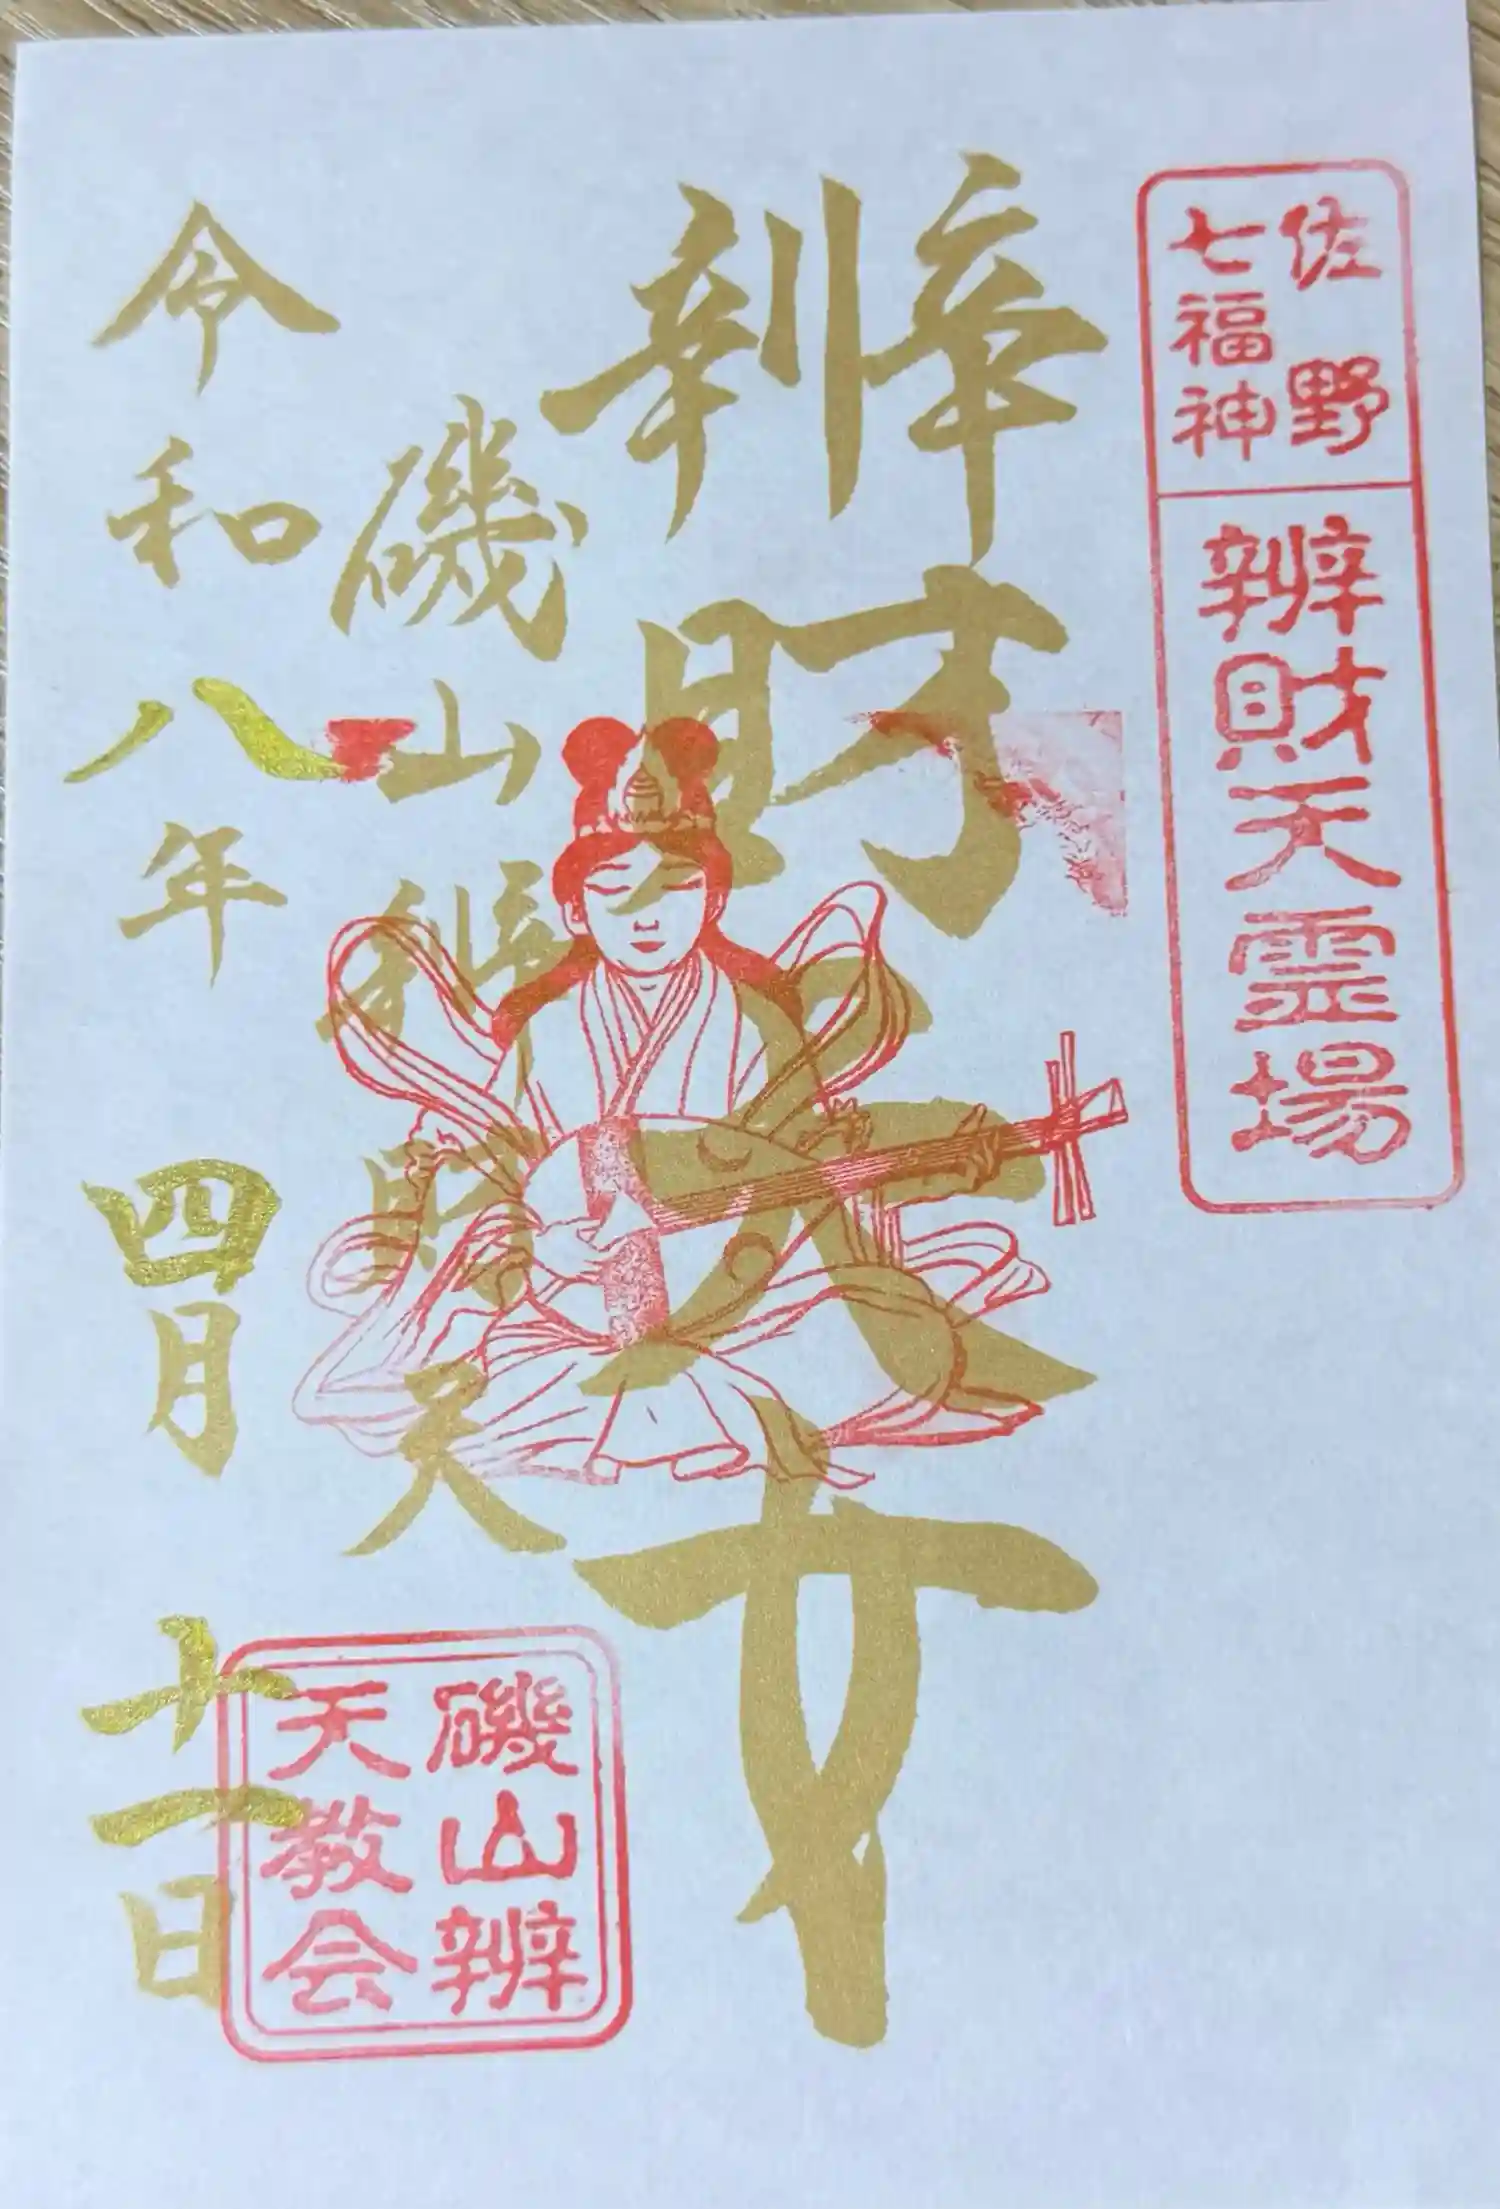 佐野
七福神
辨財天霊場
辨財天女
磯山辨財天
令和八年四月十一日
磯山辨
天教会